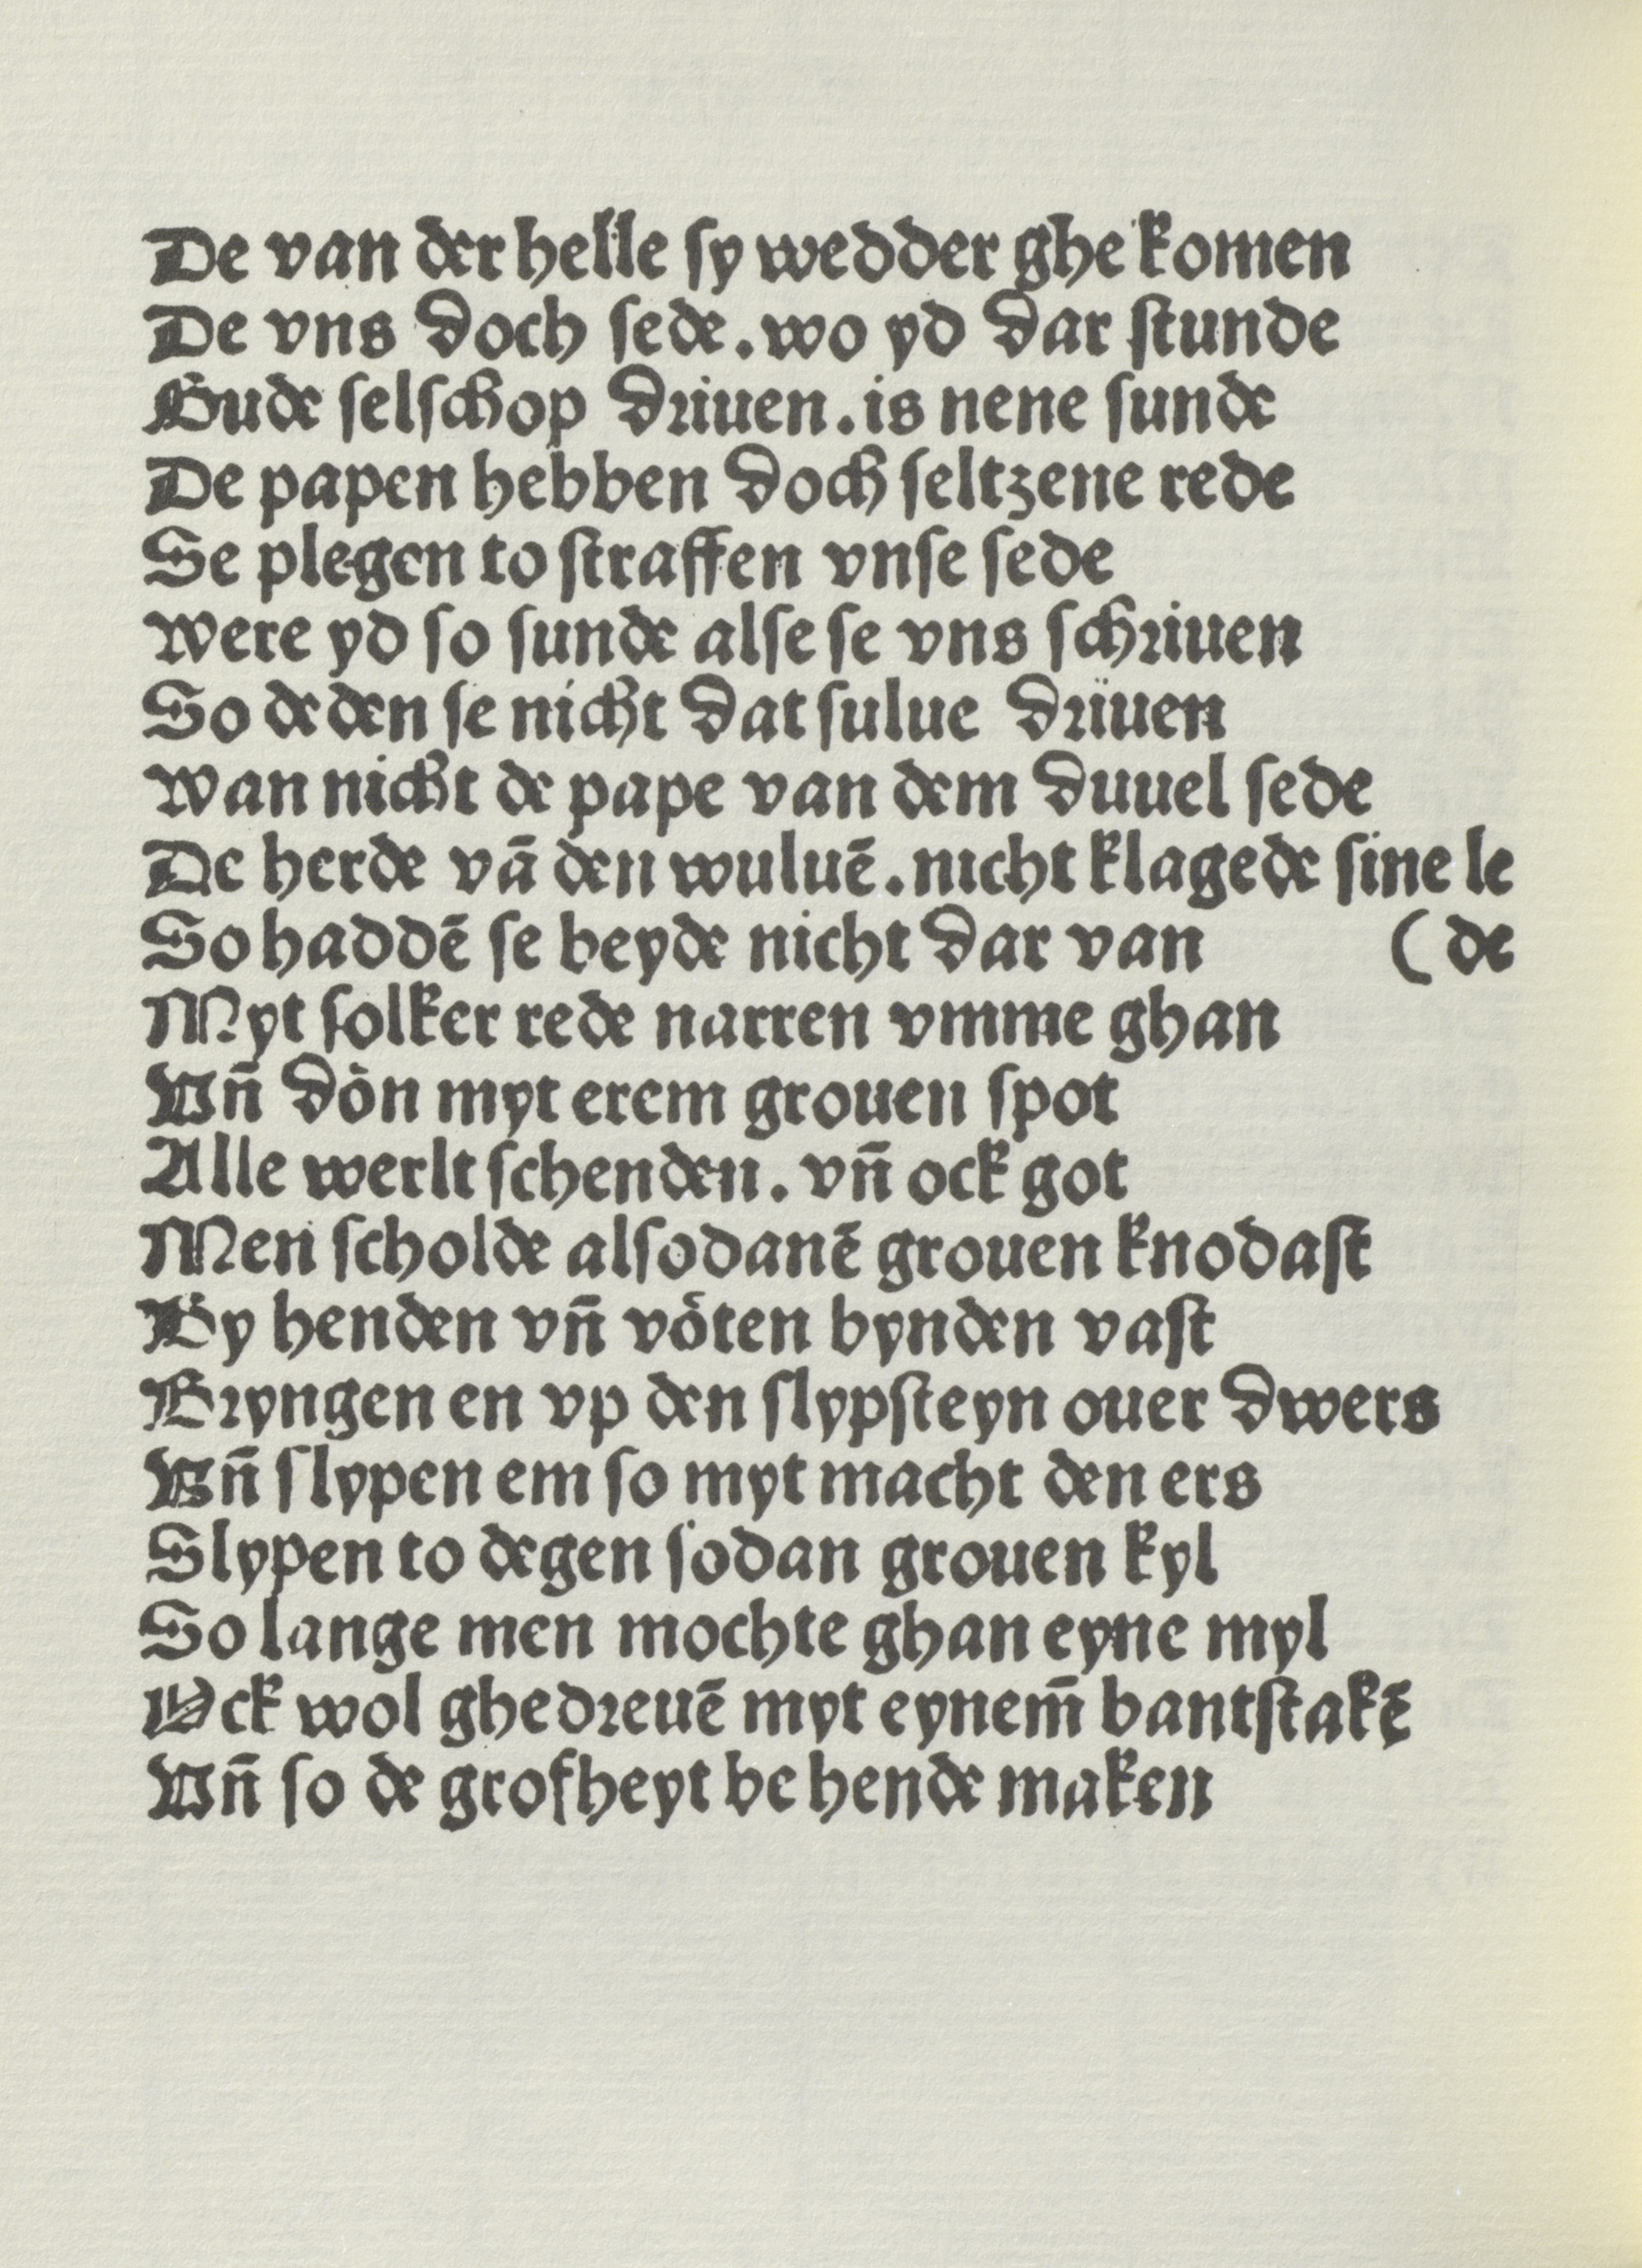 De van der helle ſy wedder ghe komen
De vns doch ſede. wo yd dar ſtunde
Gude ſelſchop driuen. is nene ſunde
De papen hebben doch ſeltzene rede
Se plegen to ſtraffen vnſe ſede
Were yd ſo ſunde alſe ſe vns ſchriuen
So deden ſe nicht dat ſulue driuen
Wan nicht de pape van dem duuel ſede
De herde vā den wuluē. nicht klagede ſine le
So haddē ſe beyde nicht dar van (de
Myt ſolker rede narren vmme ghan
Vn̄ dön myt erem grouen ſpot
Alle werlt ſchenden. vn̄ ock got
Men ſcholde alſodanē grouen knodaſt
By henden vn̄ vöten bynden vaſt
Bryngen en vp den ſlypſteyn ouer dwers
Vn̄ ſlypen em ſo myt macht den ers
Slypen to degen ſodan grouen kyl
So lange men mochte ghan eyne myl
Ock wol ghedreuē myt eynem̄ bantſtakē
Vn̄ ſo de grofheyt be hende maken